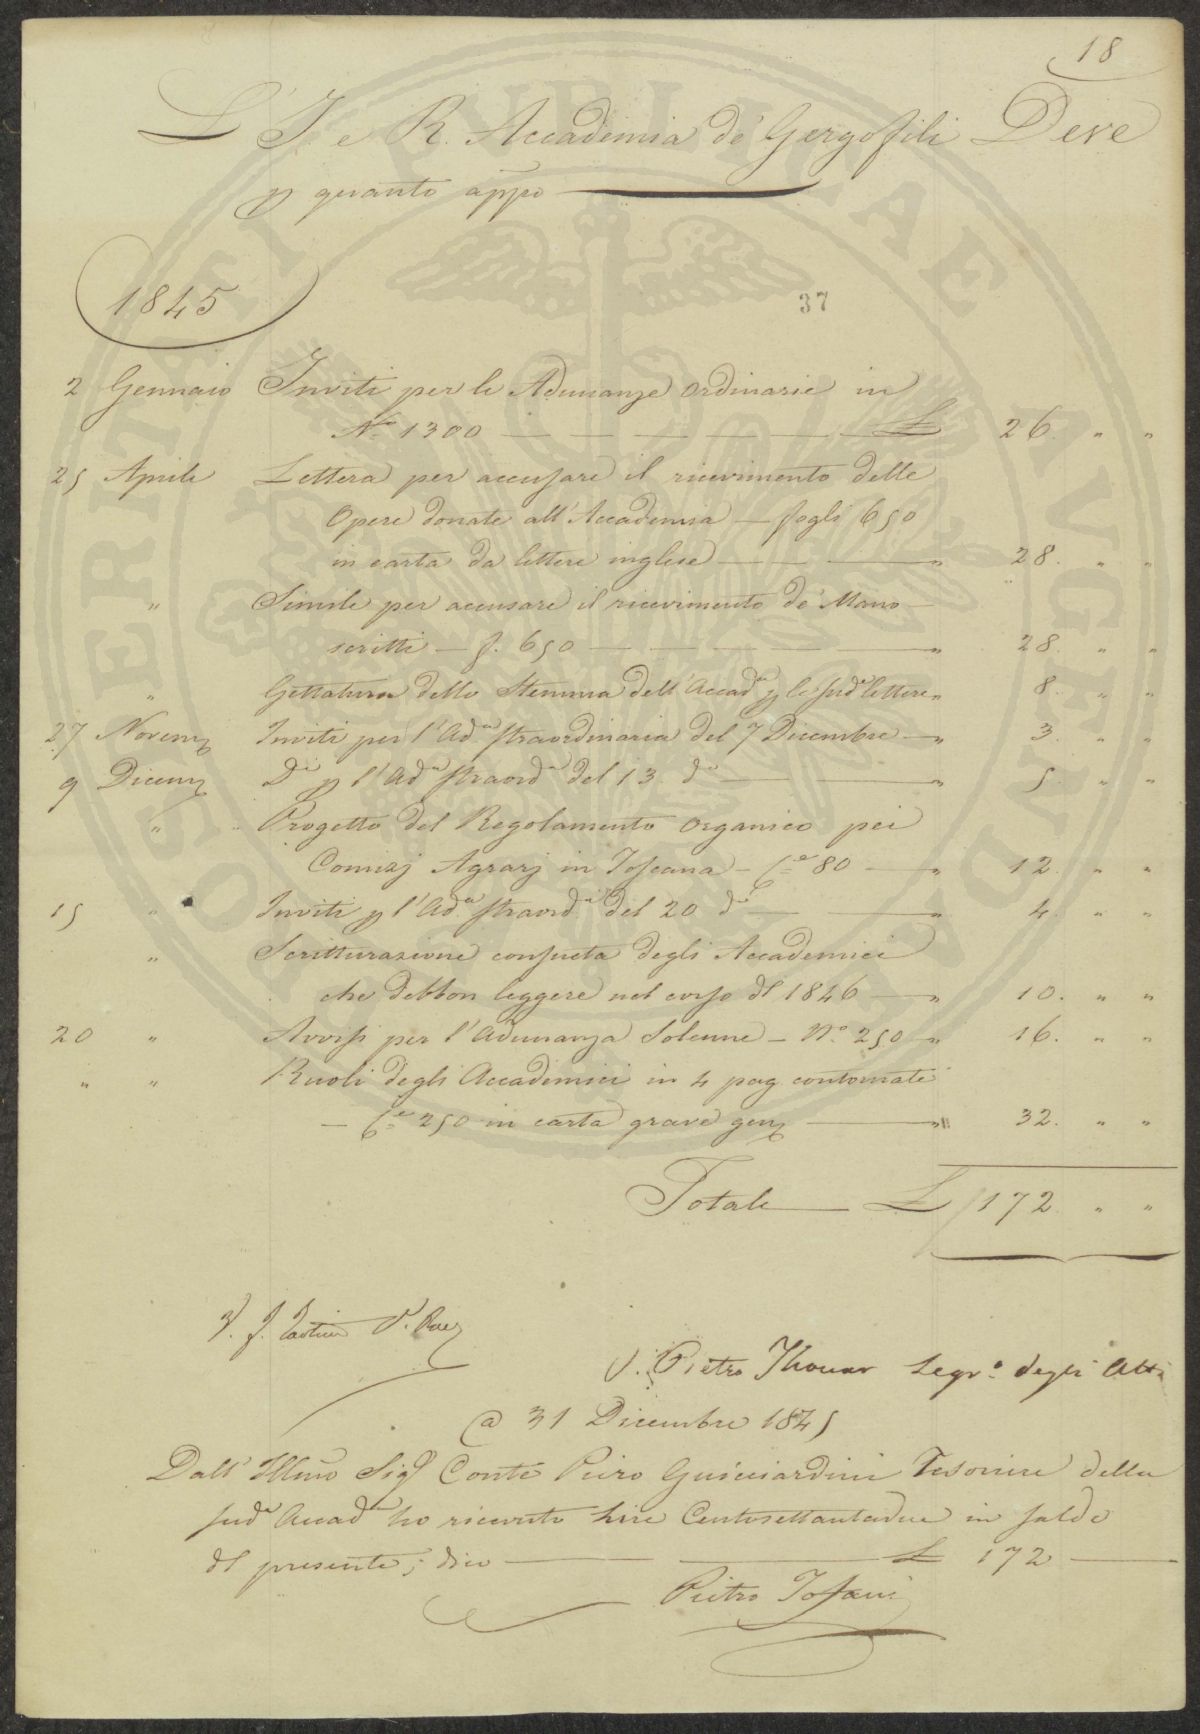 18
L' I. e R. Accademia de' Gergofili Deve
p quanto appo
1845
37
2 Gennaio Inviti per le Adunanze ordinarie in
No 1300 £ 26. " "
25 Aprile Lettera per accusare il ricevimento delle
Opere donate all'Accademia — fogli 650
in carta da lettere inglese " 28. " "
" Simile per accusare il ricevimento de' Mano-
scritti — f. 650 " 28. " "
" Gettatura dello Stemma dell'Accad.a p le sud.e lettere " 8. " "
27 Novem Inviti per l'Ad.a straordinaria del 7 Dicembre " 3. " "
9 Dicem D.i p l'Ad.a straord.a del 13. d.o " 5. " "
" Progetto del Regolamento organico pei
Comizj Agrarj in Toscana — C.e 80 " 12. " "
15 " Inviti p l'Ad.a straord.a del 20 d.o " 4. " "
" Scritturazione consueta degli Accademici
che debbon leggere nel corso dl 1846 " 10. " "
20 " Avvisi per l'Adunanza Solenne — No. 250 " 16. " "
" " Ruoli degli Accademici in 4 pag. contornate
— C.e 250 in carta grave gen " 32. " "
Totale £ 172 " "
V. F.
V. Pietro Thouar Segr.o degli Atti
A 31 Dicembre 1845
Dall' Illmo Sigr Conte Piero Guicciardini Tesoriere della
sud.a Accad.a ho ricevuto Lire Centosettantadue in saldo
dl presente; dico £ 172
Pietro Tofani
SOSPITATI PVBLICAE AVGENDAE